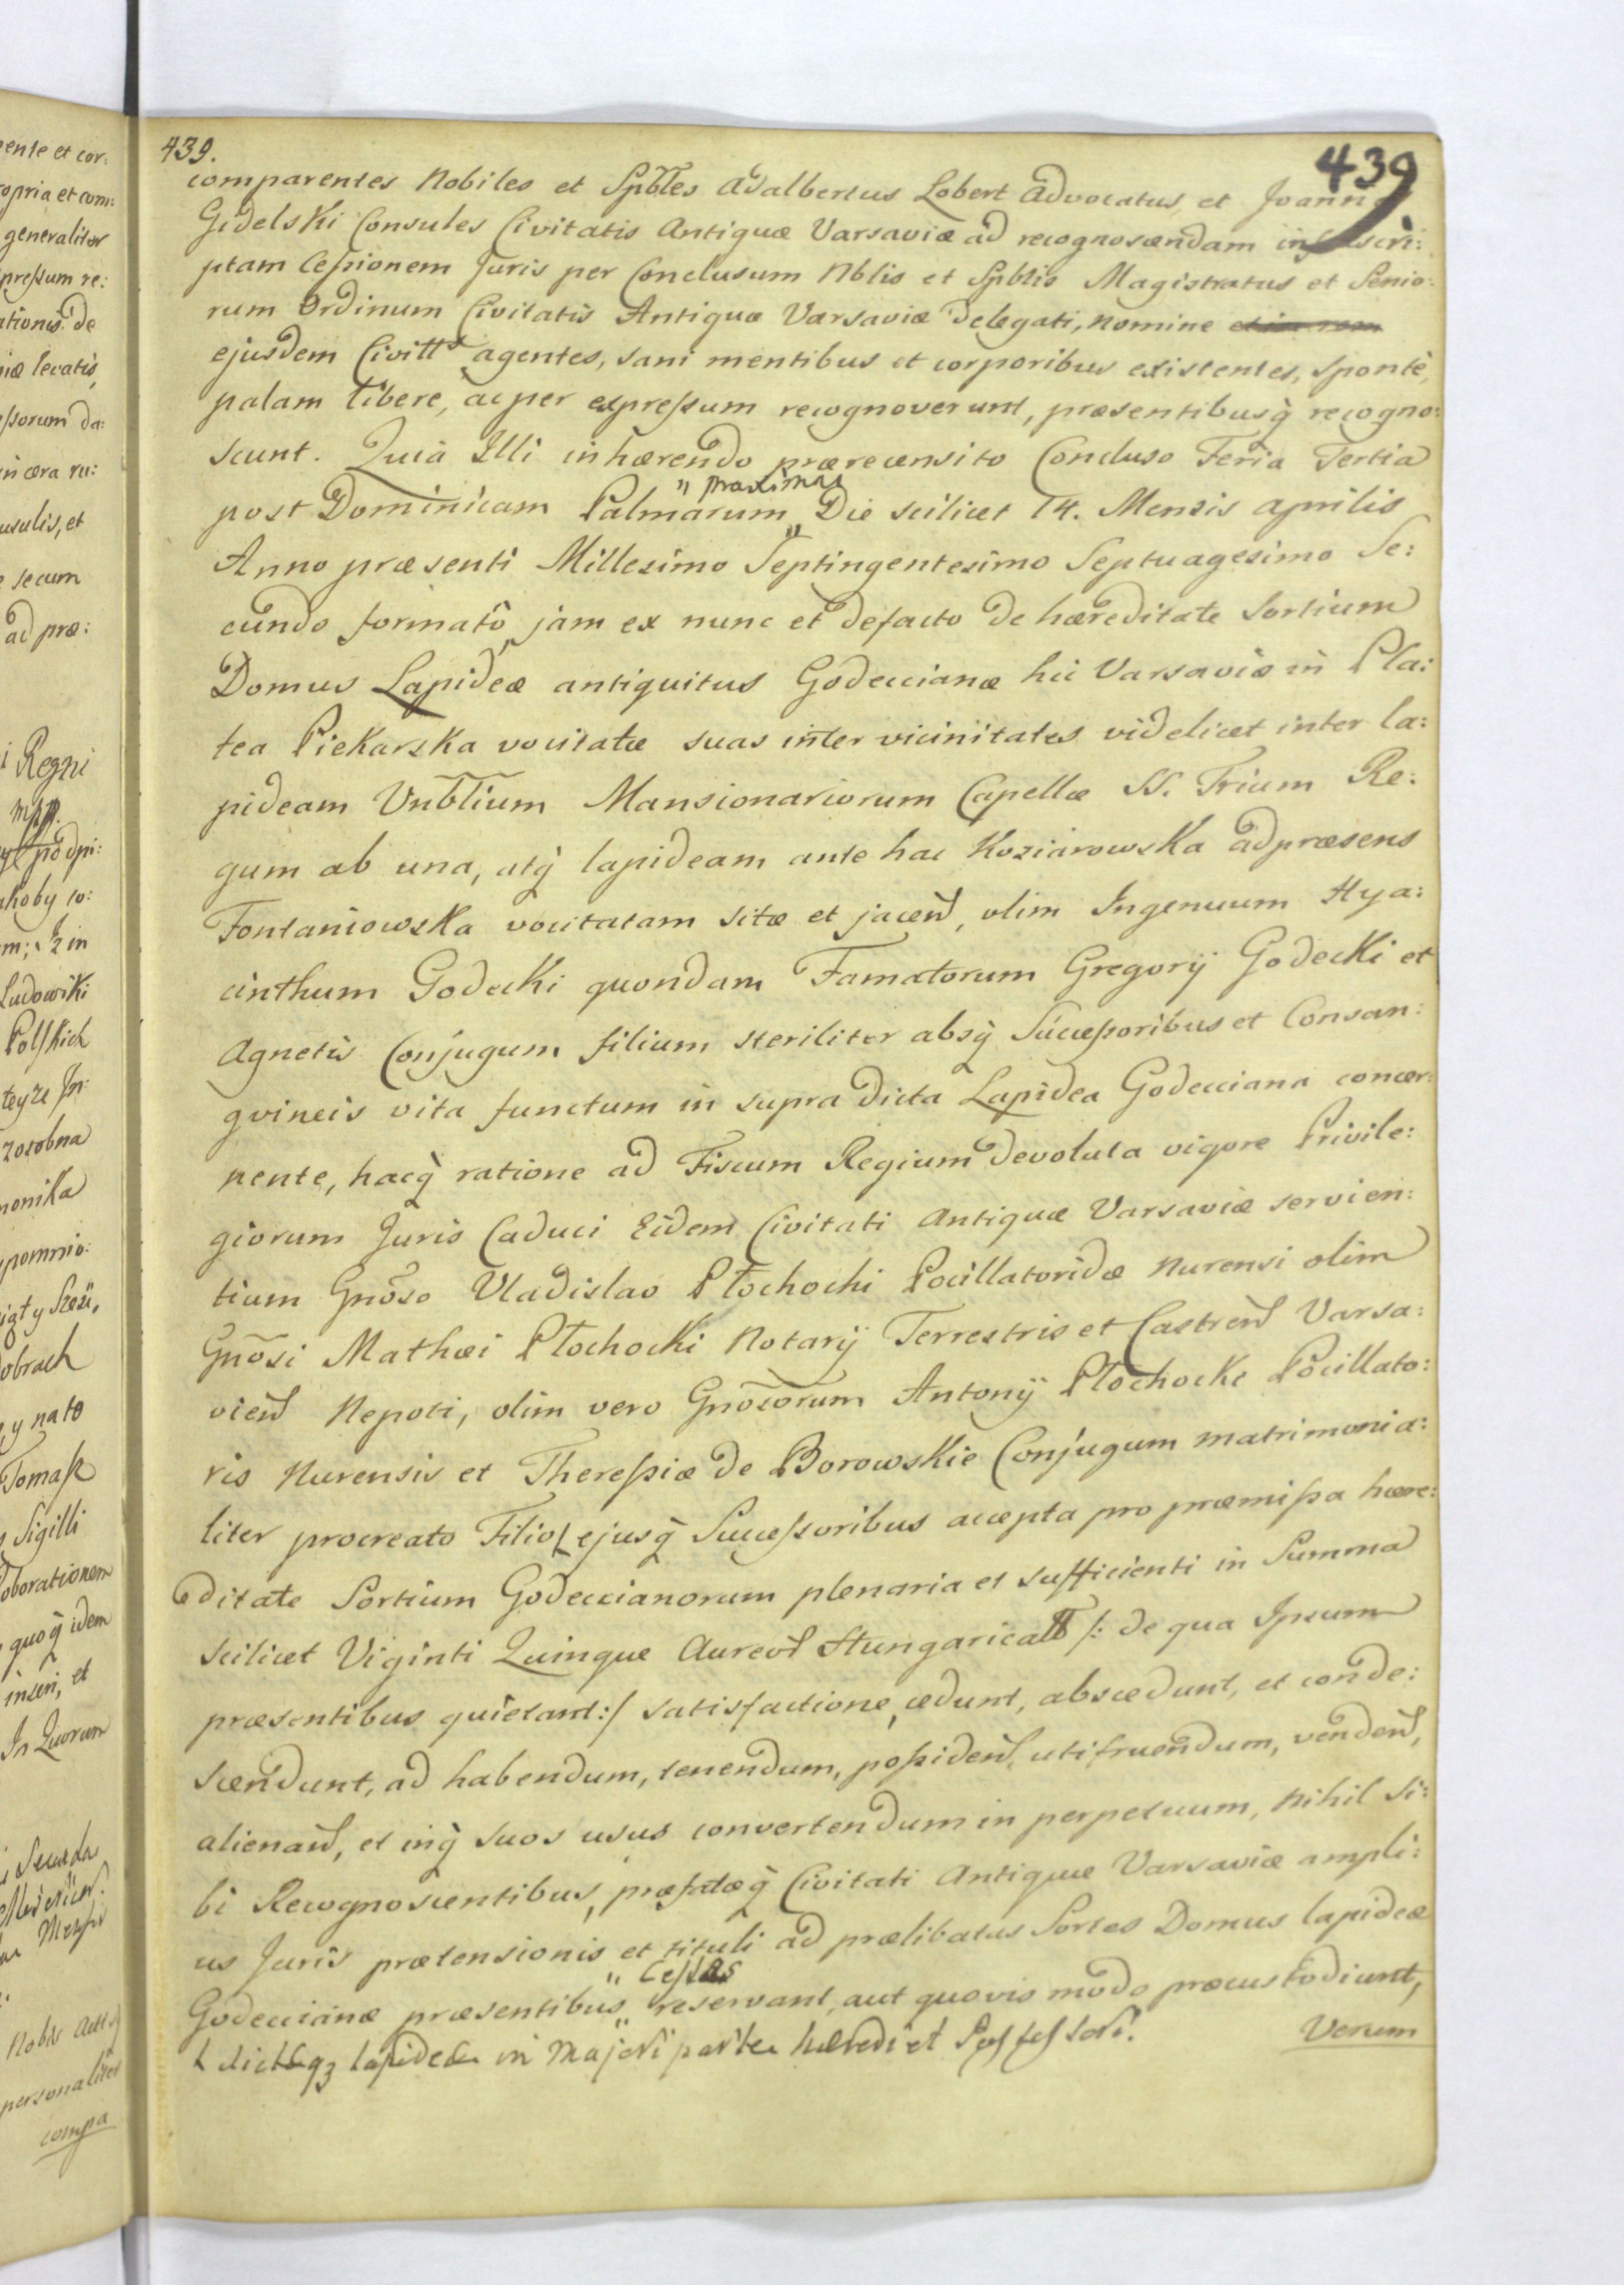 439.
439
comparentes Nobiles et Spbles Adalbertus Lobert Advocatus, et Joann
Gidelski Consules Civitatis Antiquæ Varsaviæ ad recognoscendam infrascri:
ptam Cessionem Juris per Conclusum Nblis et Spblis Magistratus et Senio:
rum Ordinum Civitatis Antiquæ Varsaviæ Delegati, Nomine
ejusdem Civitts agentes, sani mentibus et corporibus existentes, sponte,
palam libere, ac per expressum recognoverunt, præsentibusq̀ recogno:
scunt. Quia Illi inhærendo prærecensito Concluso Feria Tertia
post Dominicam Palmarum „ proxima Die scilicet 14. Mensis Aprilis
Anno præsenti Millesimo Septingentesimo Septuagesimo Se:
cundo formatô, jam ex nunc et defacto de hæreditate Sortium
Domus Lapideæ antiquitus Godeccianæ hic Varsaviæ in Pla:
tea Piekarska vocitatæ suas inter vicinitates videlicet inter la:
pideam Vnblium Mansionariorum Capellæ SS. Trium Re:
gum ab una, atq̀ lapideam ante hac Koziarowska adpræsens
Fontaniowska vocitatam sitæ et jacen, olim Ingenuum Hya:
cinthum Godecki quondam Famatorum Gregorij Godecki et
Agnetis Conjugum filium steriliter absq̀ Sucessoribus et Consan:
gvineis vita functum in supra dicta Lapidea Godecciana concer:
nente, hacq̀ ratione ad Fiscum Regium devoluta vigore Privile:
giorum Juris Caduci Eidem Civitati Antiquæ Varsaviæ servien:
tium Gnoso Vladislao Płochocki Pocillatoridæ Nurensi olim
Gnosi Mathæi Płochocki Notarij Terrestris et Castren Varsa:
vien Nepoti, olim vero Gnosorum Antonij Płochocki Pocillato:
ris Nurensis et Theressiæ de Borowskie Conjugum matrimonia:
liter procreato Filio ejusq̀ Successoribus accepta pro præmissa hære:
ditate Sortium Godeccianorum plenaria et sufficienti in Summa
scilicet Viginti Quinque Aureor Hungarical /: de qua Ipsum
præsentibus quietant :/ satisfactione, cedunt, abscedunt, et conde:
scendunt, ad habendum, tenendum, possiden, utifruendum, venden,
alienan, et inq̀ suos usus convertendum in perpetuum, nihil si:
bi Recognoscentibus, præfatæq̀ Civitati Antiquæ Varsaviæ ampli:
us Juris prætensionis et tituli ad prælibatas Sortes Domus lapideæ
Godeccianæ præsentibus „ Cessas reservant, aut quovis modo præcustodiunt,
dictæq3 lapideæ in Majori parte hæredi et Possessori.
Verum